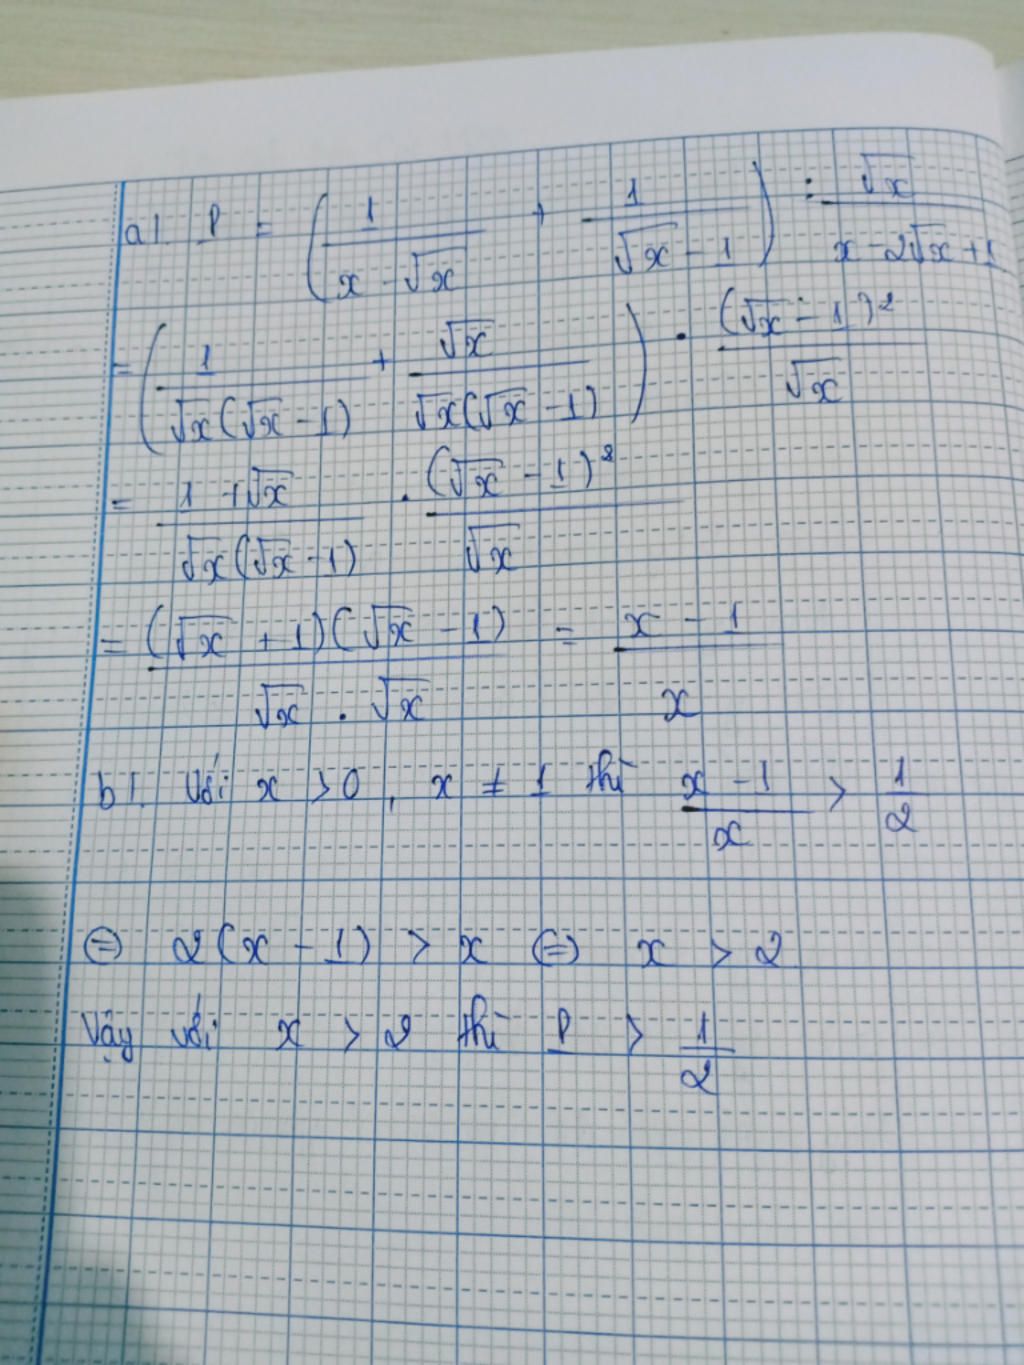 a). P = (1/(x - √x) + 1/(√x - 1)) : √x/(x - 2√x + 1)
= (1/(√x(√x - 1)) + √x/(√x(√x - 1))) . (√x - 1)²/√x
= (1 + √x)/(√x(√x - 1)) . (√x - 1)²/√x
= (√x + 1)(√x - 1)/(√x . √x) = (x - 1)/x
b). Với x > 0, x ≠ 1 thì (x - 1)/x > 1/2
⇔ 2(x - 1) > x ⇔ x > 2
Vậy với x > 2 thì P > 1/2